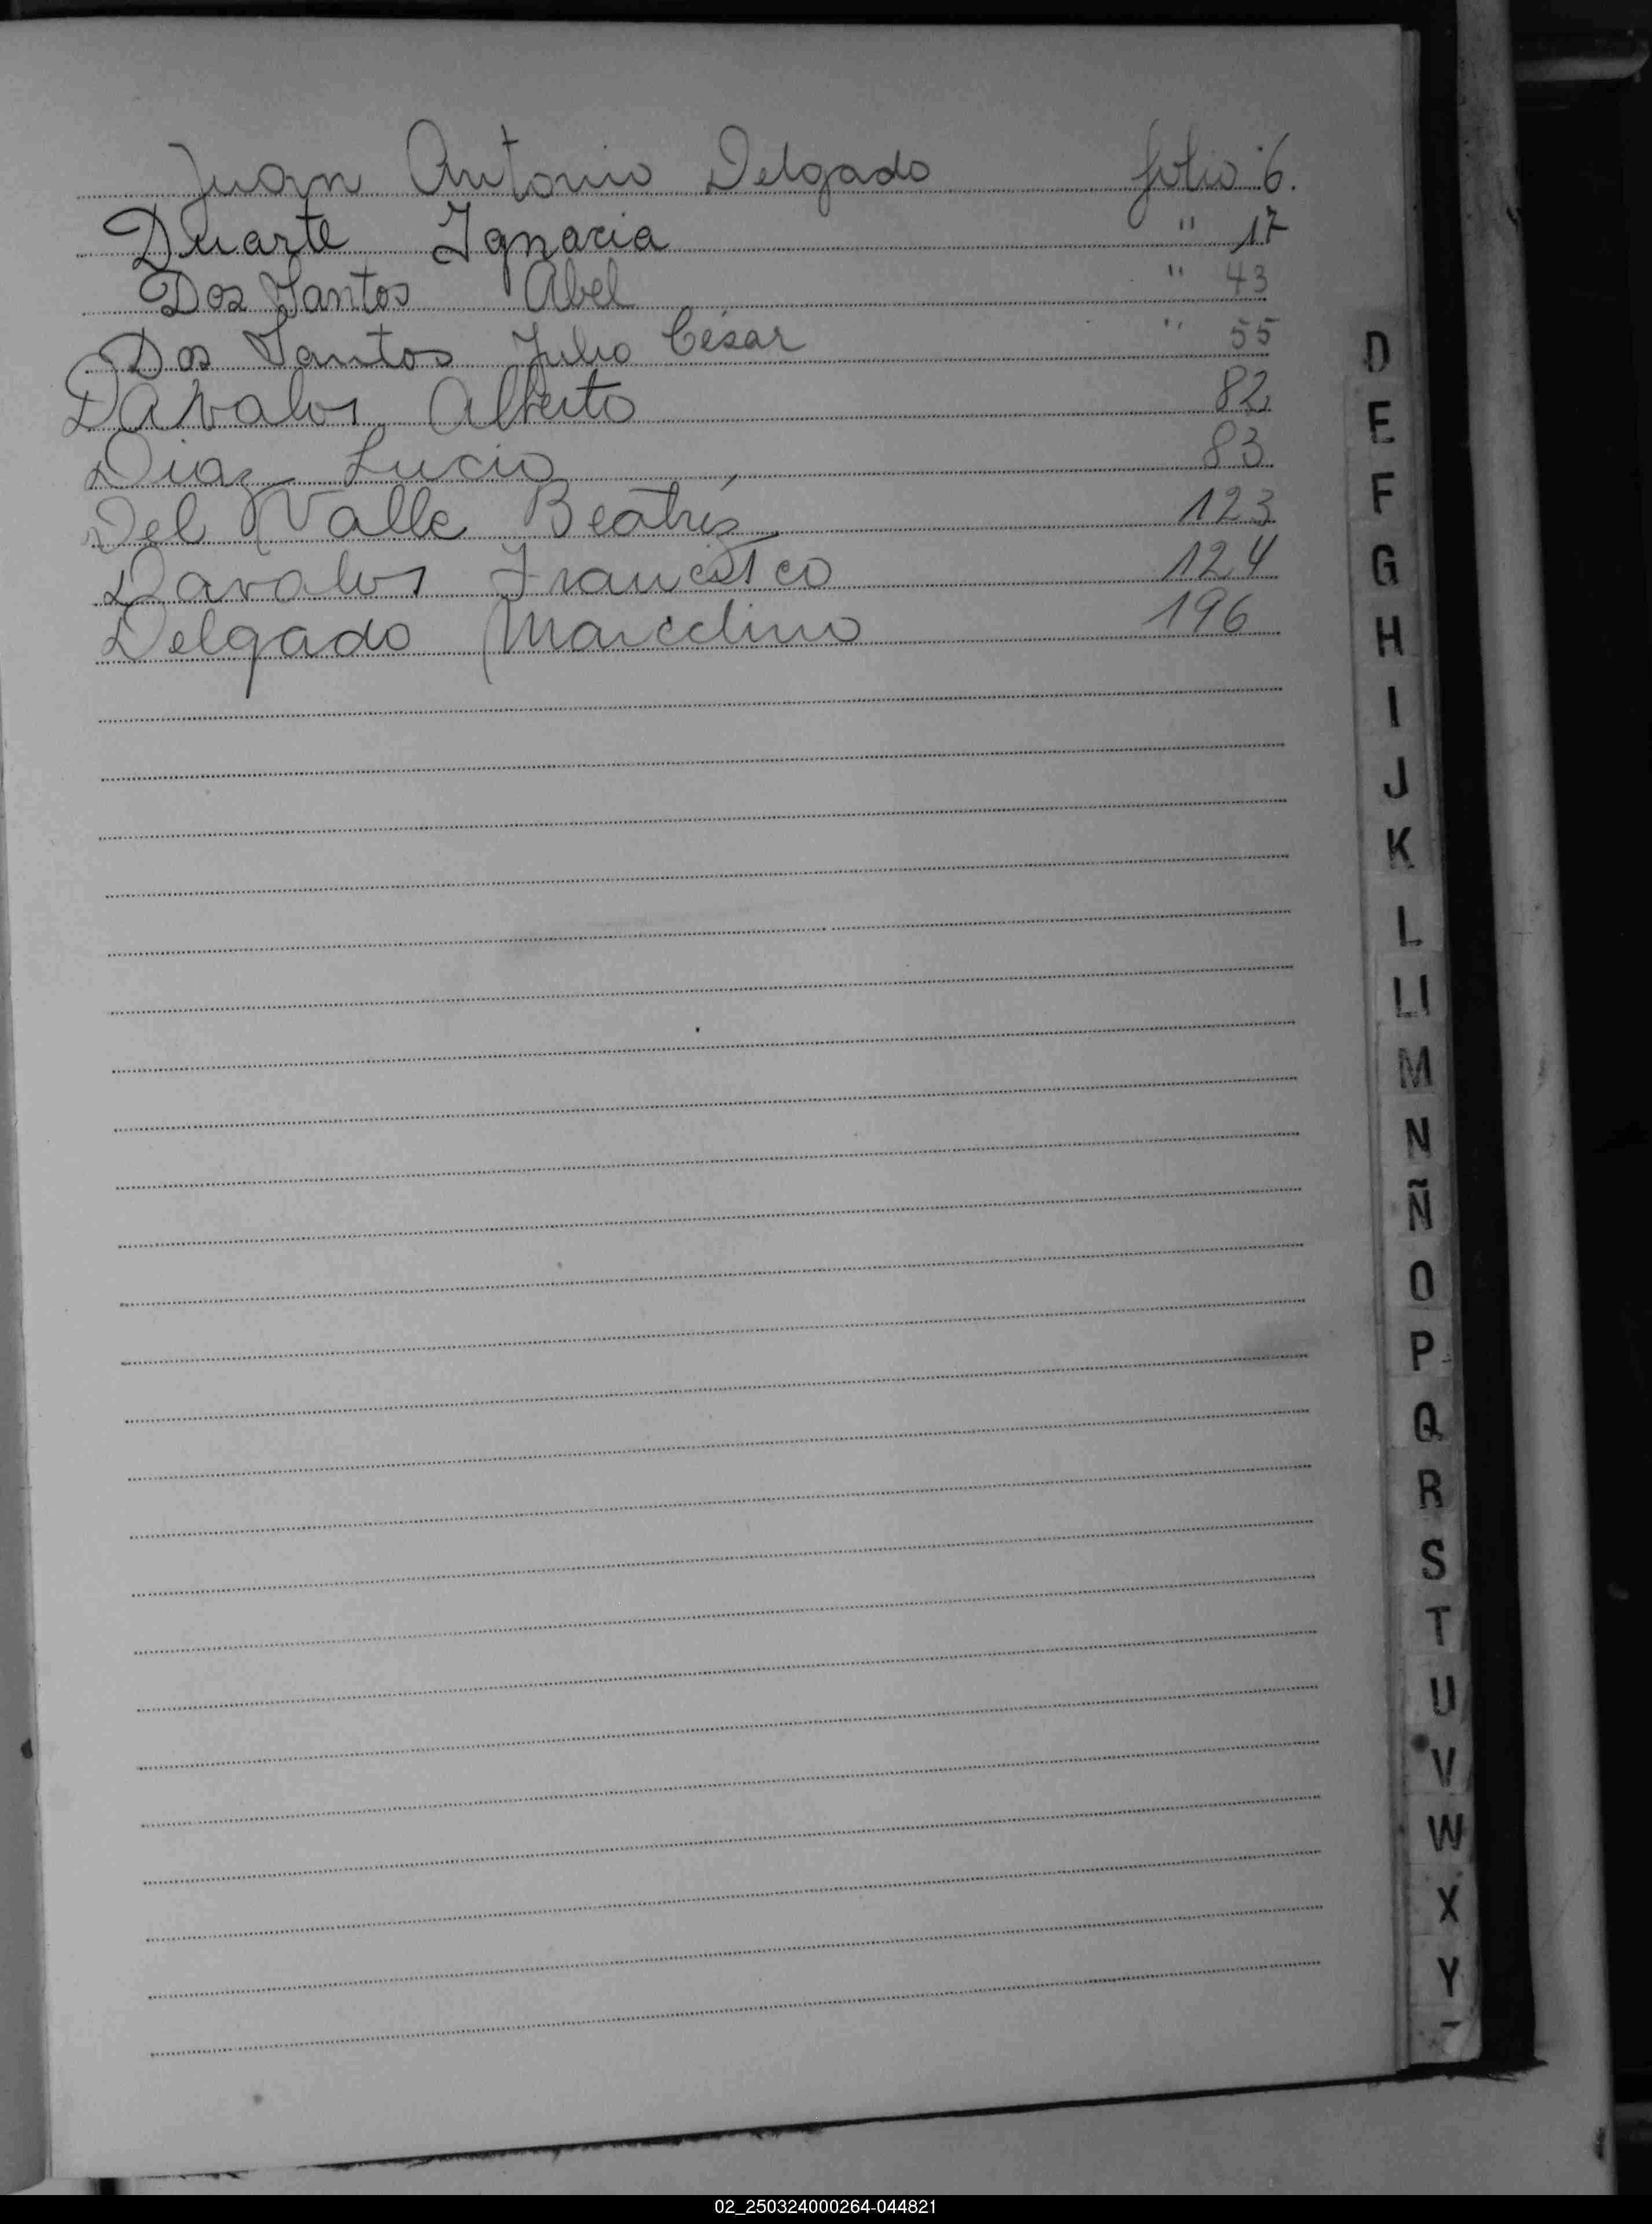 Juan Antonio Delgado folio 6.
Duarte Ignacia " 17
Dos Santos Abel " 43
Dos Santos Julio César " 55
Dávalos Alberto 82
Diaz Lucio 83
Del Valle Beatríz 123
Davalos Francisco 124
Delgado Marcelino 196
D
E
F
G
H
I
J
K
L
Ll
M
N
Ñ
O
P
Q
R
S
T
U
V
W
X
Y
02_250324000264-044821